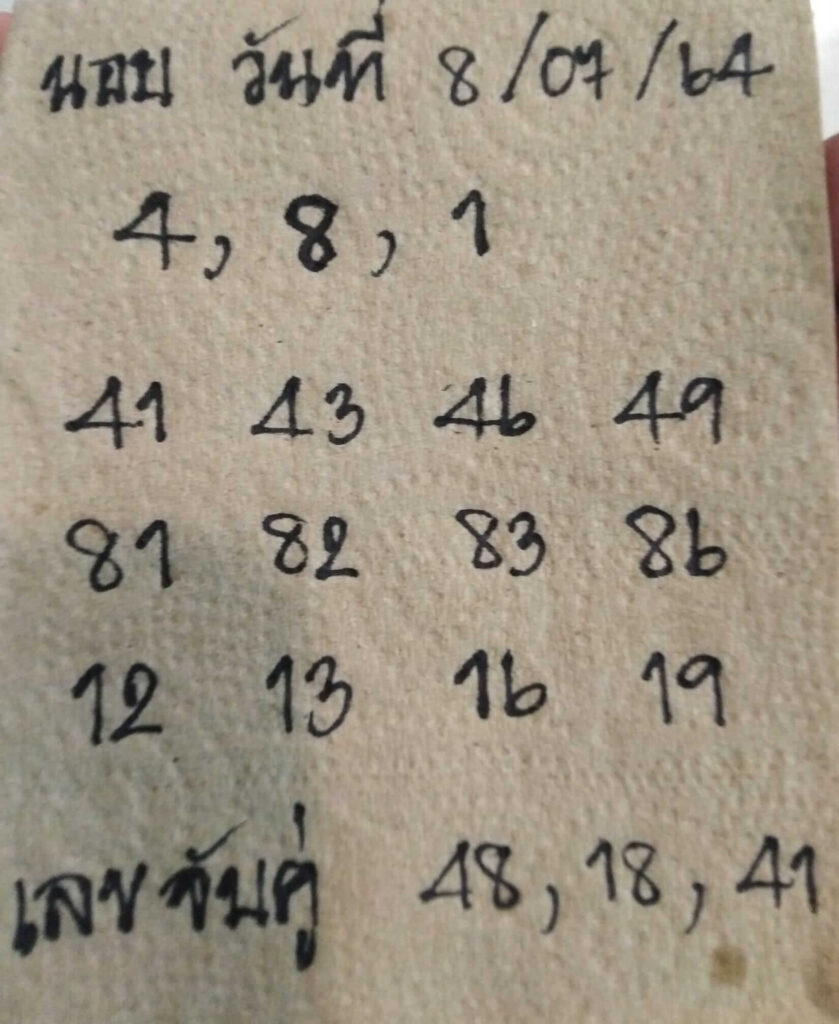 นอย วันที่ 8/07/64
4, 8, 1
41 43 46 49
81 82 83 86
12 13 16 19
เลขจับคู่ 48, 18, 41